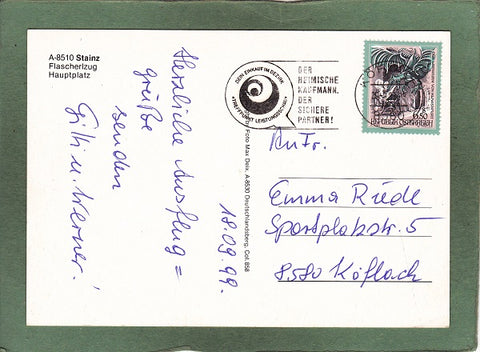 A-8510 Stainz
Flascherlzug
Hauptplatz
Herzliche Ausflug=
grüße
senden
Gitti u. Werner!
18.09.99.
Foto Max Deix, A-8530 Deutschlandsberg, Col. 858
DEIN EINKAUF IM BEZIRK
TREFFPUNKT LEISTUNGSSCHAU
DER
HEIMISCHE
KAUFMANN.
DER
SICHERE
PARTNER!
6.50
REPUBLIK ÖSTERREICH
An Fr.
Emma Riedl
Sportplatzstr. 5
8580 Köflach